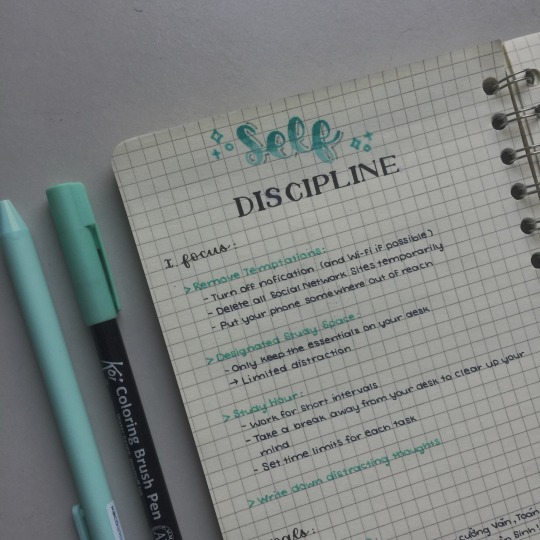 Self
DISCIPLINE
I. focus:
> Remove Temptations:
- Turn off nofication (and Wi-Fi if possible)
- Delete all Social Network Sites temporarily
- Put your phone somewhere out of reach
> Designated Study Space:
- Only keep the essentials on your desk
→ Limited distraction
> Study Hour:
- Work for short intervals
- Take a break away from your desk to clear up your
mind
- Set time limits for each task
> Write down distracting thoughts
Văn, Toán
Bình
Koi Coloring Brush Pen